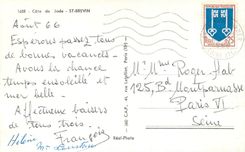 1488 - Côte de Jade - ST-BREVIN
Août 66
Esperons passez tous
de bonnes vacances.
Avons la chance
temps ensoleillé et
mer belle.
Affectueux baisers
de tous trois.
François
Hélène
Mr Mme Roger
125, Bd Montparnasse
Paris VI
Seine
Réal-Photo